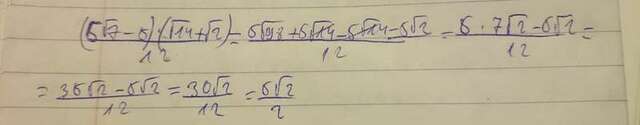 (5√7-5)(√14+√2)/12 = 5√98+5√14-5√14-5√2/12 = 5·7√2-5√2/12 =
= 35√2-5√2/12 = 30√2/12 = 5√2/2